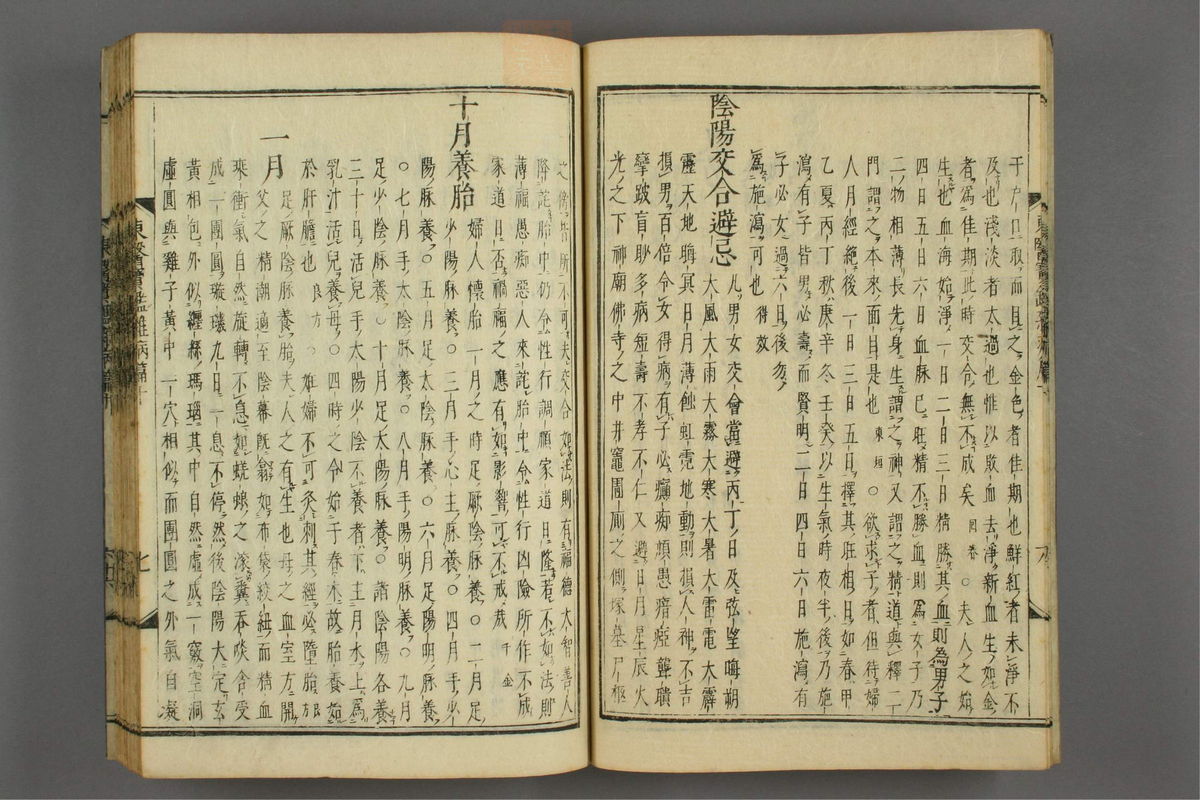 及也淺淡者太過也惟以敗血去淨新血生如金
者為佳期此時交合無不成矣 回春 ○夫人之始
生也血海始淨一日二日三日精勝其血則為男子
四日五日六日血脉已旺精不勝血則為女子乃
二物相薄長先身生謂之神又謂之精道與釋二
門謂之本來面目是也 東垣 ○欲求子者但待婦
人月經絕後一日三日五日擇其旺相日如春甲
乙夏丙丁秋庚辛冬壬癸以生氣時夜半後乃施
瀉有子皆男必壽而賢明二日四日六日施瀉有
子必女過六日後勿
為施瀉可也 得效
陰陽交合避忌
凡男女交會當避丙丁日及弦望晦朔
大風大雨大霧大寒大暑大雷電大霹
靂天地晦冥日月薄蝕虹霓地動則損人神不吉
損男百倍令女得病有子必癲痴頑愚瘖瘂聾聵
攣跛盲眇多病短壽不孝不仁又避日月星辰火
光之下神廟佛寺之中井竈圊厠之側塚墓尸柩
之傍皆所不可夫交合如法則有福德大智善人
降詫胎中仍令性行調順家道日隆若不如法則
薄福愚痴惡人來詫胎中令性行凶險所作不成
家道日否禍福之應有如影響可不戒哉 千金
十月養胎
婦人懷胎一月之時足厥陰脉養○二月足
少陽脉養○三月手心主脉養○四月手少
陽脉養○五月足太陰脉養○六月足陽明脉養
○七月手太陰脉養○八月手陽明脉養○九月
足少陰脉養○十月足太陽脉養○諸陰陽各養
三十日活兒手太陽少陰不養者下主月水上為
乳汁活兒養母○四時之令始于春木故胎養始
於肝膽也 良方 ○妊婦不可灸刺其經必墮胎
一月
足厥陰脉養胎夫人之有生也母之血室方開
父之精潮適至陰幕既翕如布袋絞紐而精血
乘衝氣自然旋轉不息如蜣蜋之滾糞吞啖含受
成一團圓璇璣九日一息不停然後陰陽大定玄
黃相包外似纏絲瑪瑙其中自然虛成一竅空洞
虛圓與雞子黃中一穴相似而團圓之外氣自凝
東醫寶鑑雜病篇十
七